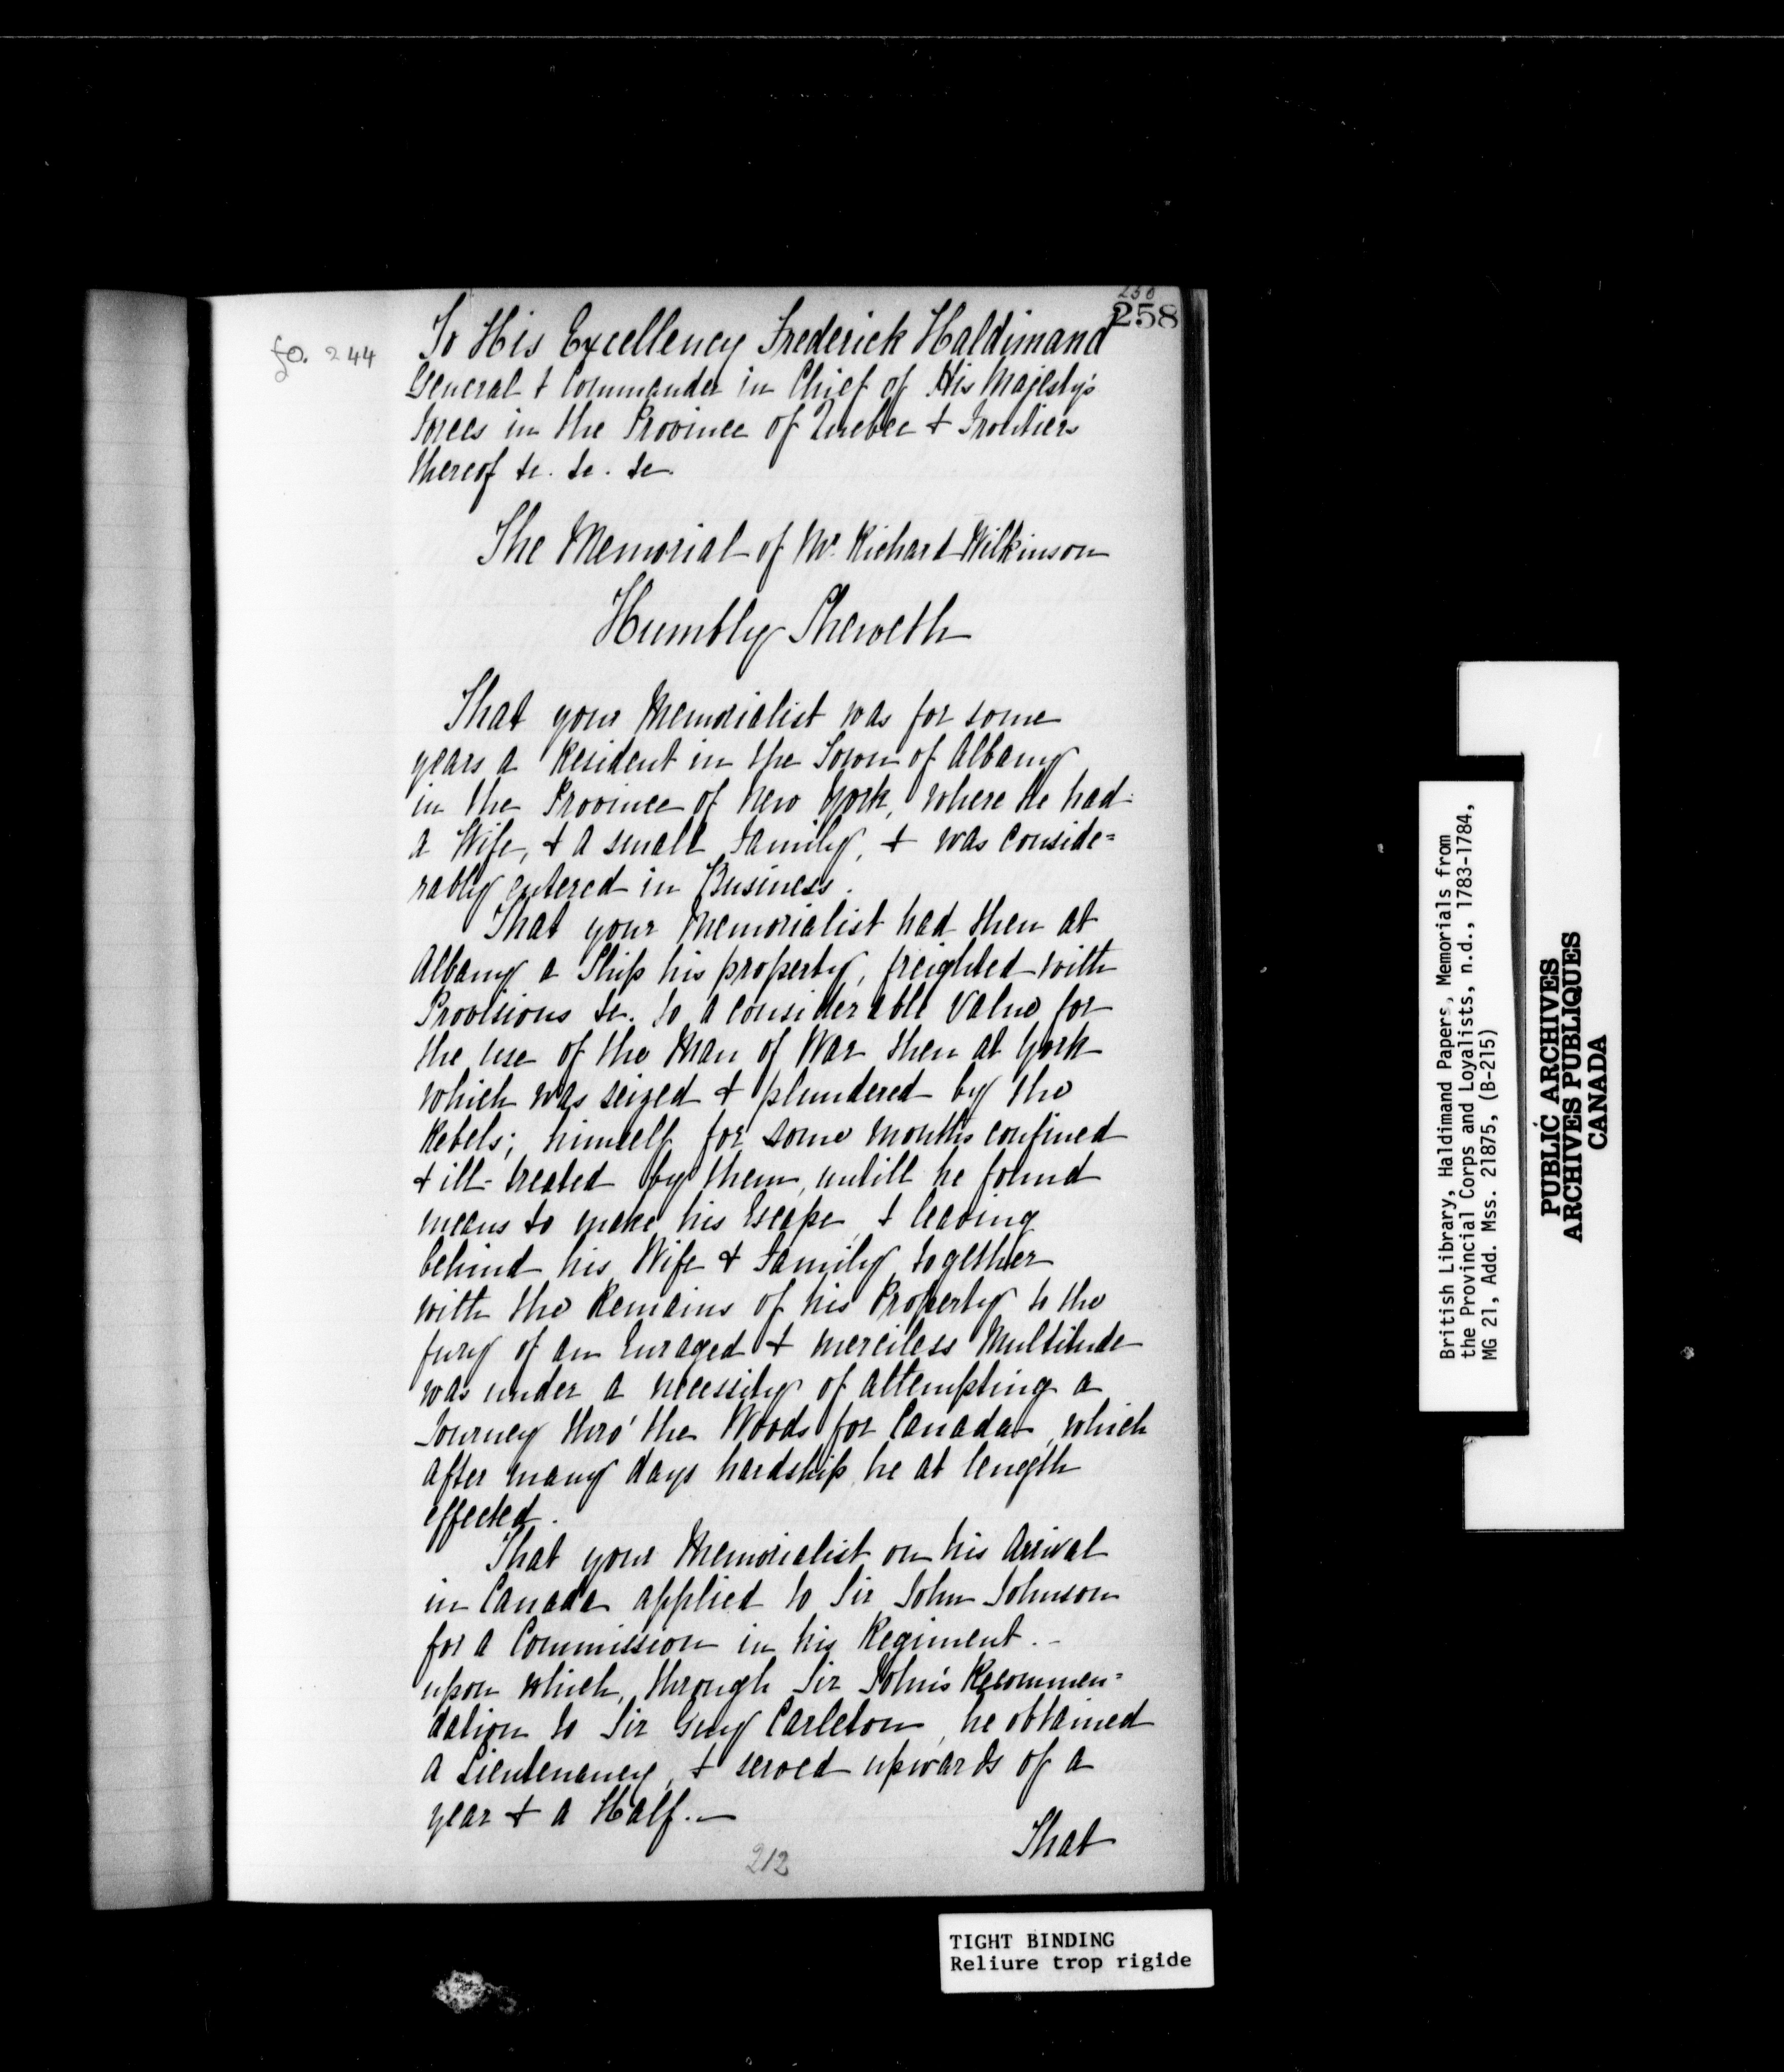 258
fo. 244
To His Excellency Frederick Haldimand
General & Commander in Chief of His Majesty's
forces in the Province of Quebec & Frontiers
thereof &c. &c. &c
The Memorial of Mr. Richard Wilkinson
Humbly Sheweth
That your Memorialist was for some
years a Resident in the Town of Albany
in the Province of New York, where he had
a Wife, & a small family, & was conside=
rably entered in Business.
That your Memorialist had then at
Albany a Ship his property, freighted with
Provisions &c. to a considerable Value for
the use of the Man of War then at York
which was seized & plundered by the
Rebels; himself for some months confined
& ill-treated by them, untill he found
means to make his Escape, & leaving
behind his Wife & family together
with the Remains of his Property to the
fury of an Enraged & merciless Multitude
was under a necessity of attempting a
Journey thro' the Woods for Canada, which
after many days hardship he at length
effected.
That your Memorialist on his Arrival
in Canada applied to Sir John Johnson
for a Commission in his Regiment. -
upon which, through Sir John's Recommen=
dation to Sir Guy Carleton, he obtained
a Lieutenancy, & served upwards of a
year & a Half. —
That
212
TIGHT BINDING
Reliure trop rigide
British Library, Haldimand Papers, Memorials from
the Provincial Corps and Loyalists, n.d., 1783-1784,
MG 21, Add. Mss. 21875, (B-215)
PUBLIC ARCHIVES
ARCHIVES PUBLIQUES
CANADA